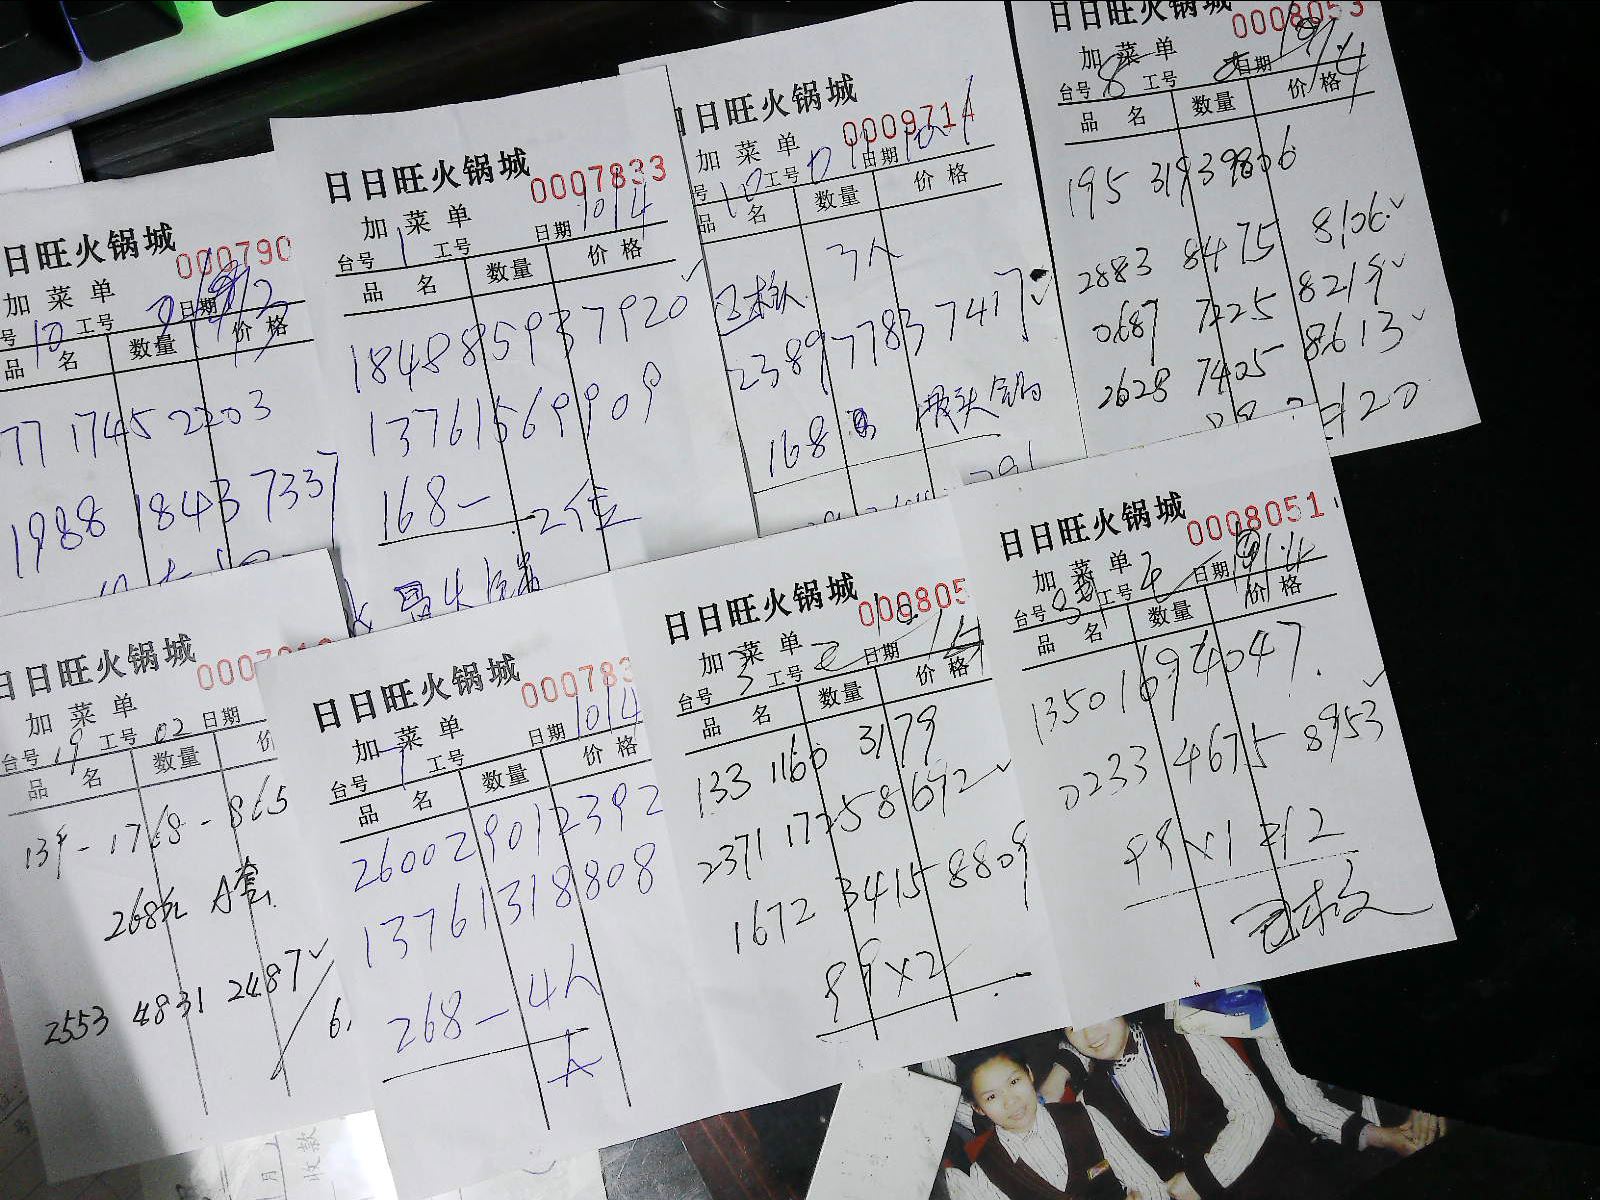 日日旺火锅城
000790
加菜单
日期
号 10 工号
品名 数量 价格
77 1745 2203
1988 1843 7337
日日旺火锅城
0007833
加菜单
日期 10/4
台号 1 工号
品名 数量 价格
1848 8593 7920 ✓
13761569909
168- 2位
日日旺火锅城
0009714
加菜单
日期
号 10 工号
品名 数量 价格
3人
2389 7783 7417 ✓
168 骨头锅
日日旺火锅城
0008053
加菜单
日期
台号 8 工号
品名 数量 价格
195 3193 9806
2883 8475 8106 ✓
0687 7225 8219 ✓
2628 7405 8613 ✓
2120
日日旺火锅城
加菜单
台号 19 工号 02 日期
品名 数量 价
139-1768-865
268元 A套
2553 4831 2487 ✓
6.
日日旺火锅城
000783
加菜单
日期 10/4
台号 1 工号
品名 数量 价格
260029012392
13761318808
268-4人
A
日日旺火锅城
000805
加菜单
日期
台号 3 工号
品名 数量 价格
133 1160 3179
2371 1725 8692 ✓
1672 3415 8809
99×2
日日旺火锅城
0008051
加菜单
日期
台号 工号
品名 数量 价格
1350 169 4047.
0233 4675 8953 ✓
99×1 212
收款